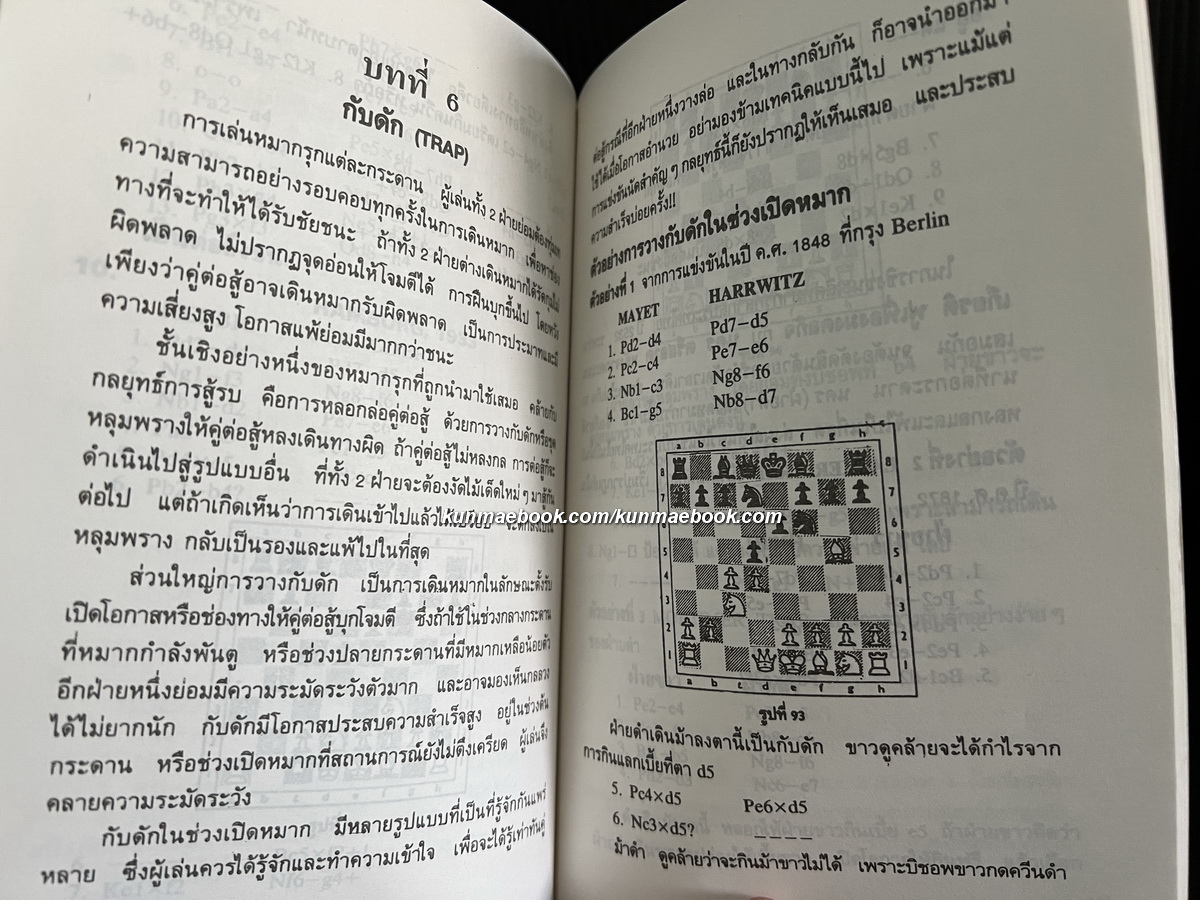 บทที่ 6
กับดัก (TRAP)
การเล่นหมากรุกแต่ละกระดาน ผู้เล่นทั้ง 2 ฝ่ายย่อมต้องทุ่มเท
ความสามารถอย่างรอบคอบทุกครั้งในการเดินหมาก เพื่อหาช่อง
ทางที่จะทำให้ได้รับชัยชนะ ถ้าทั้ง 2 ฝ่ายต่างเดินหมากได้รัดกุมไม่
ผิดพลาด ไม่ปรากฏจุดอ่อนให้โจมตีได้ การฝืนบุกขึ้นไป โดยหวัง
เพียงว่าคู่ต่อสู้อาจเดินหมากรับผิดพลาด เป็นการประมาทและมี
ความเสี่ยงสูง โอกาสแพ้ย่อมมีมากกว่าชนะ
ชั้นเชิงอย่างหนึ่งของหมากรุกที่ถูกนำมาใช้เสมอ คล้ายกับ
กลยุทธ์การสู้รบ คือการหลอกล่อคู่ต่อสู้ ด้วยการวางกับดักหรือขุด
หลุมพรางให้คู่ต่อสู้หลงเดินทางผิด ถ้าคู่ต่อสู้ไม่หลงกล การต่อสู้ก็จะ
ดำเนินไปสู่รูปแบบอื่น ที่ทั้ง 2 ฝ่ายจะต้องงัดไม้เด็ดใหม่ๆ มาสู้กัน
ต่อไป แต่ถ้าเกิดเห็นว่าการเดินเข้าไปแล้ว
หลุมพราง กลับเป็นรองและแพ้ไปในที่สุด
ส่วนใหญ่การวางกับดัก เป็นการเดินหมากในลักษณะตั้งรับ
เปิดโอกาสหรือช่องทางให้คู่ต่อสู้บุกโจมตี ซึ่งถ้าใช้ในช่วงกลางกระดาน
ที่หมากกำลังพันตู หรือช่วงปลายกระดานที่มีหมากเหลือน้อยตัว
อีกฝ่ายหนึ่งย่อมมีความระมัดระวังตัวมาก และอาจมองเห็นกลลวง
ได้ไม่ยากนัก กับดักมีโอกาสประสบความสำเร็จสูง อยู่ในช่วงต้น
กระดาน หรือช่วงเปิดหมากที่สถานการณ์ยังไม่ตึงเครียด ผู้เล่นจึง
คลายความระมัดระวัง
กับดักในช่วงเปิดหมาก มีหลายรูปแบบที่เป็นที่รู้จักกันแพร่
หลาย ซึ่งผู้เล่นควรได้รู้จักและทำความเข้าใจ เพื่อจะได้รู้เท่าทันคู่
ต่อสู้กรณีที่อีกฝ่ายหนึ่งวางล่อ และในทางกลับกัน ก็อาจนำออกมา
ใช้ได้เมื่อโอกาสอำนวย อย่ามองข้ามเทคนิคแบบนี้ไป เพราะแม้แต่
การแข่งขันนัดสำคัญๆ กลยุทธ์นี้ก็ยังปรากฏให้เห็นเสมอ และประสบ
ความสำเร็จบ่อยครั้ง!!
ตัวอย่างการวางกับดักในช่วงเปิดหมาก
ตัวอย่างที่ 1 จากการแข่งขันในปี ค.ศ. 1848 ที่กรุง Berlin
MAYET HARRWITZ
1. Pd2-d4 Pd7-d5
2. Pc2-c4 Pe7-e6
3. Nb1-c3 Ng8-f6
4. Bc1-g5 Nb8-d7
a b c d e f g h
8 8
7 7
6 6
5 5
4 4
3 3
2 2
1 1
a b c d e f g h
รูปที่ 93
ฝ่ายดำเดินม้าลงตานี้เป็นกับดัก ขาวดูคล้ายจะได้กำไรจาก
การกินแลกเบี้ยที่ตา d5
5. Pc4×d5 Pe6×d5
6. Nc3×d5? ----
ม้าดำ ดูคล้ายว่าจะกินม้าขาวไม่ได้ เพราะบิชอพขาวกดควีนดำ
kunmaebook.com/kunmaebook.com